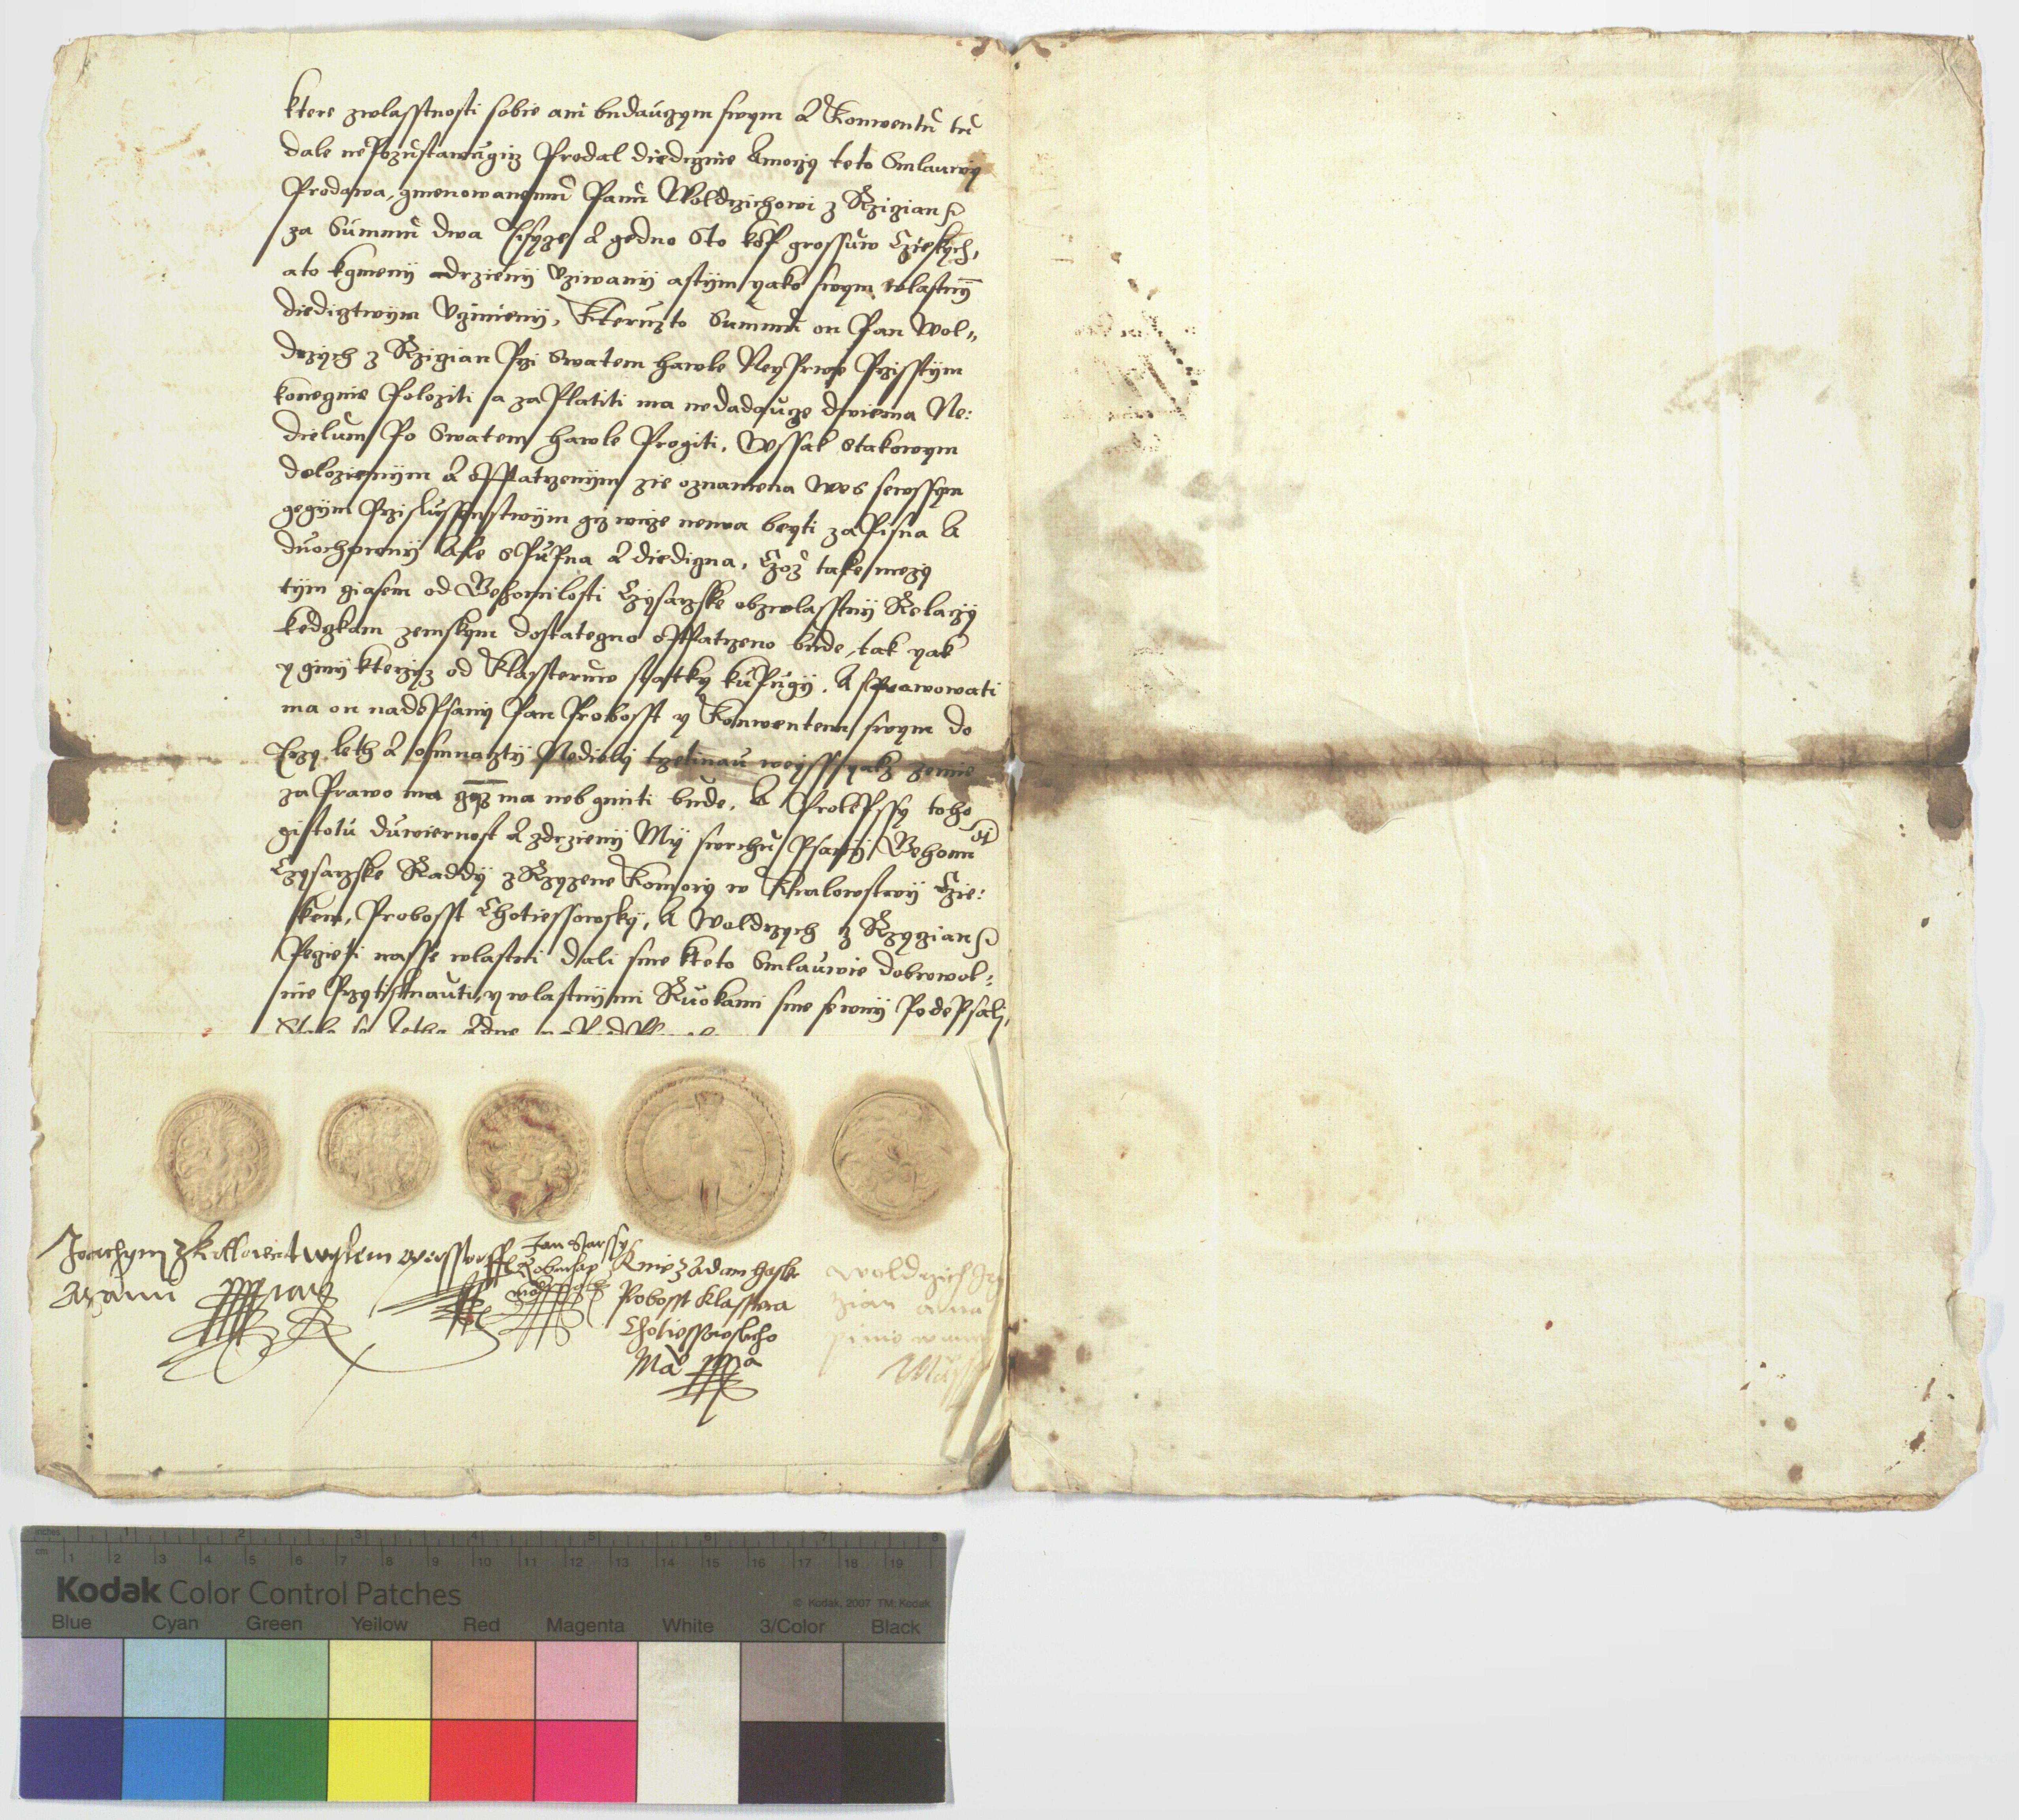 ktere zwlasstnosti sobie ani budauczym swym a Konwentu tu
dale nePozustawugicz Prodal diediczne a moczy teto Smlauwy
Prodawa, gmenowanemu Panu Woldrzichowi z Rzigian
za Summu dwa Tisycze a gedno Sto kop grossuw Czieskych,
ato kgmeny drzieny Vziwany astym yako swym wlastny
diedicztwym Vczinieny, Kteruzto Summu on Pan Wol„
drzych z Rzigian Przi Swatem Hawle NeyPrwe Przisstym
konegnie Poloziti a zaPlatiti ma nedadaucze dwiema Ne:
dielum Po Swatem Hawle Progiti, Wssak stakowym
dolozienym a oPatrzenym zie oznamena wes sewssym
gegym Przislussenstwym giz wicze nema beyti zaPisna a
duochowny Ale sPuPna a diedigna, Czoz take mezy
tym giasem od Geho milosti Czysarzske obzwlasstny Relaczy
kedgkam zemskym dostategno oPatrzeno bude, tak yak
y giny kterziz od Klassteruw statky kuPugy, a sprawowati
ma on nadePsany Pan Probosst y Konwentem swym do
Trzy leth a osmnaczty Nedieli trzetinau weyss yakz zemie
za Prawo ma gez ma neb gmiti bude, A ProlePssy toho
gistotu duwiernost a zdrzieny My swrchu Psany Gehomti
Czysarzske Raddy zRzyzene Komory w Kralowstwy Czie:
skem, Probosst Chotiessowsky, A Woldrzych z Rzygian
Peczieti nasse wlastni dali sme kteto Smlauwie dobrowol:
nie Przytisknauti, y wlastnymi Ruokami sme sewny PodePsali,
Joachym z Kollowrat
wylem
Jan Starssy
z Lobkowicz
Kniez Adam
Probosst Klasstera
Chotiessowskeho
Ma ppa
Woldrzich
inches
cm
1 2 3 4 5 6 7 8
1 2 3 4 5 6 7 8 9 10 11 12 13 14 15 16 17 18 19
Kodak Color Control Patches
© Kodak, 2007 TM: Kodak
Blue Cyan Green Yellow Red Magenta White 3/Color Black